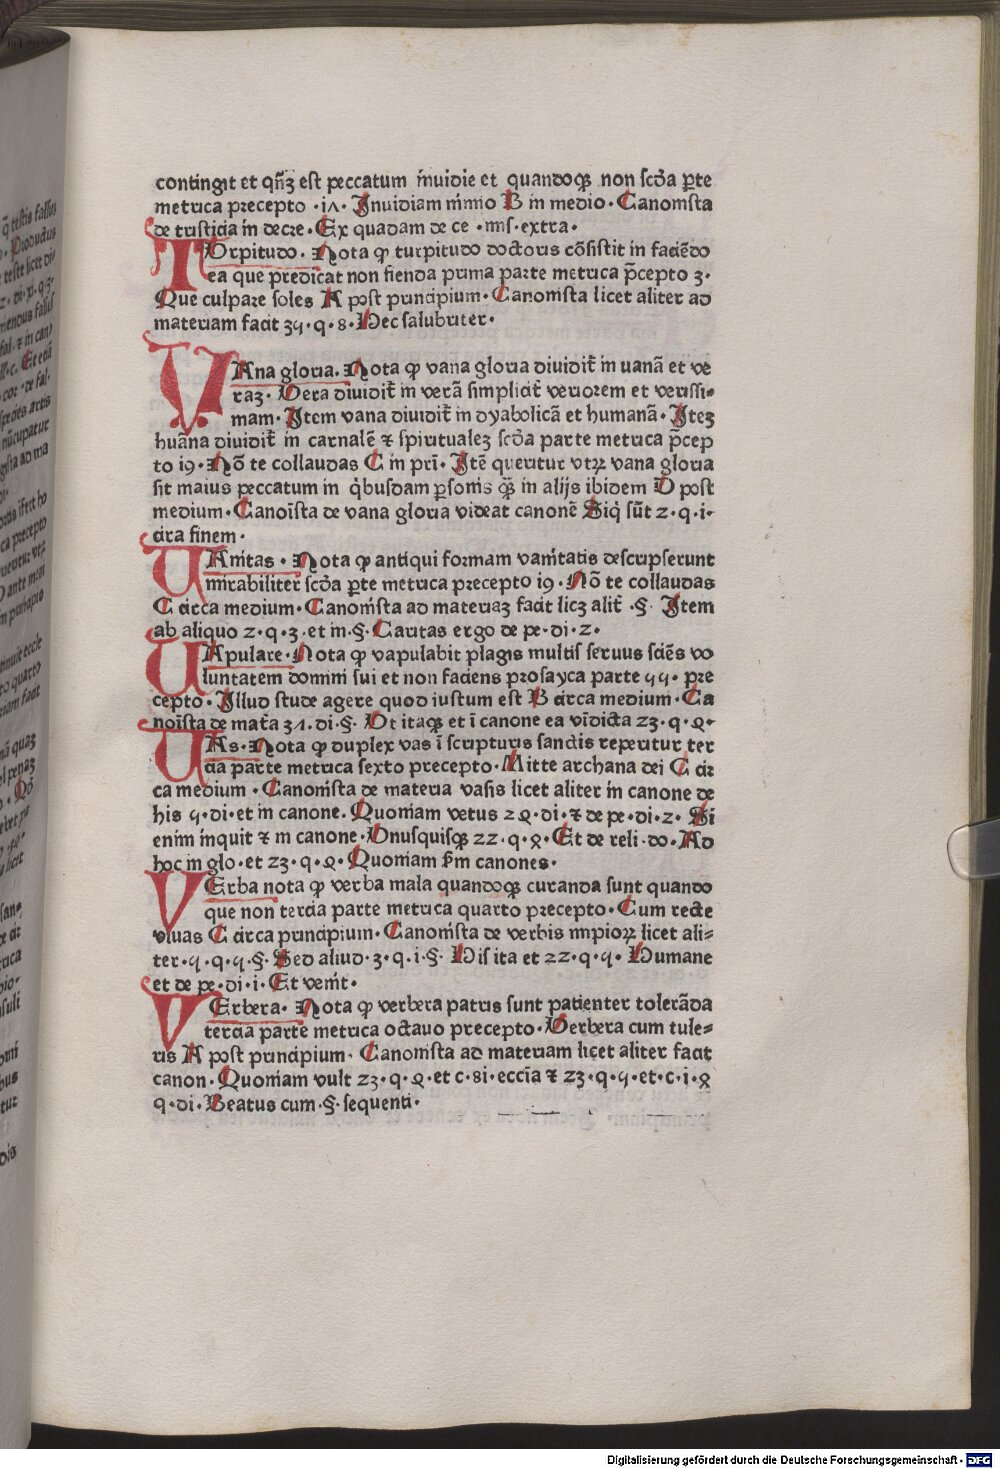 contingit et qñʒ est peccatum inuidie et quandoqʒ non scda ꝑte
metrica precepto ·iʌ· Inuidiam nimio B in medio · Canonista
de tristicia in decre · Ex quadam de ce · nns · extra ·
TOrpitudo · Nota ꝙ turpitudo doctoris cõsistit in faciẽdo
ea que predicat non fienda prima parte metrica p̃cepto 3 ·
Que culpare soles A post principium · Canonista licet aliter ad
materiam facit 3ꝗ · q · 8 · Hec salubriter ·
VAna gloria . Nota ꝙ vana gloria diuidit̃ in uanã et ve
raʒ · Vera diuidit̃ in verã simplicit̃ veriorem et verissi-
mam · Item vana diuidit̃ in dyabolicã et humanã · Iteʒ
huãna diuidit̃ in carnalẽ ⁊ spiritualeʒ scda parte metrica p̃cep
to 19 · Nõ te collaudas C in pri · Itẽ queritur vtꝝ vana gloria
sit maius peccatum in q̇busdam ꝑsonis qʒ̃ in alijs ibidem D post
medium · Canoĩsta de vana gloria videat canonẽ Siq̇ sũt 2 · q · i ·
circa finem ·
UAnitas · Nota ꝙ antiqui formam vanitatis descripserunt
mirabiliter scda ꝑte metrica precepto 19 · Nõ te collaudas
C circa medium · Canonista ad materiaʒ facit licʒ alit̃ · § · Item
ab aliquo 2 · q · 3 · et in · § · Caritas ergo de pe · di · 2 ·
UApulare · Nota ꝙ vapulabit plagis multis seruus sciẽs vo
luntatem domini sui et non faciens prosayca parte ꝗꝗ · pre
cepto · Illud stude agere quod iustum est B circa medium · Ca
noĩsta de mat̃a 31 · di · § · Vt itaqʒ et ĩ canone ea vĩdicta 23 · q · 2 ·
UAs · Nota ꝙ duplex vas ĩ scripturis sanctis reperitur ter
cia parte metrica sexto precepto · Mitte archana dei C cir
ca medium · Canonista de materia vasis licet aliter in canone de
his ꝗ · di · et in canone . Quoniam vetus 2 2 · di · ⁊ de pe · di · 2 · Si
enim inquit ⁊ in canone · Vnusquisqʒ 22 · q · 8 · Et de reli · do · Ad
hoc in glo · et 23 · q · 2 · Quoniam ẜm canones ·
VErba nota ꝙ verba mala quandoqʒ curanda sunt quando
que non tercia parte metrica quarto precepto · Cum recte
viuas C circa principium · Canonista de verbis impioꝝ licet ali-
ter · ꝗ · q · ꝗ · § · Sed aliud · 3 · q · i · § · His ita et 22 · q · ꝗ · Humane
et de pe · di · i · Et venit ·
VErbera · Nota ꝙ verbera patris sunt patienter tolerãda
tercia parte metrica octauo precepto · Verbera cum tule-
ris A post principium · Canonista ad materiam licet aliter facit
canon · Quoniam vult 23 · q · 2 · et c · si · eccĩa ⁊ 23 · q · ꝗ · et · c · i · 8
q · di · Beatus cum · § · sequenti ·
Digitalisierung gefördert durch die Deutsche Forschungsgemeinschaft · DFG